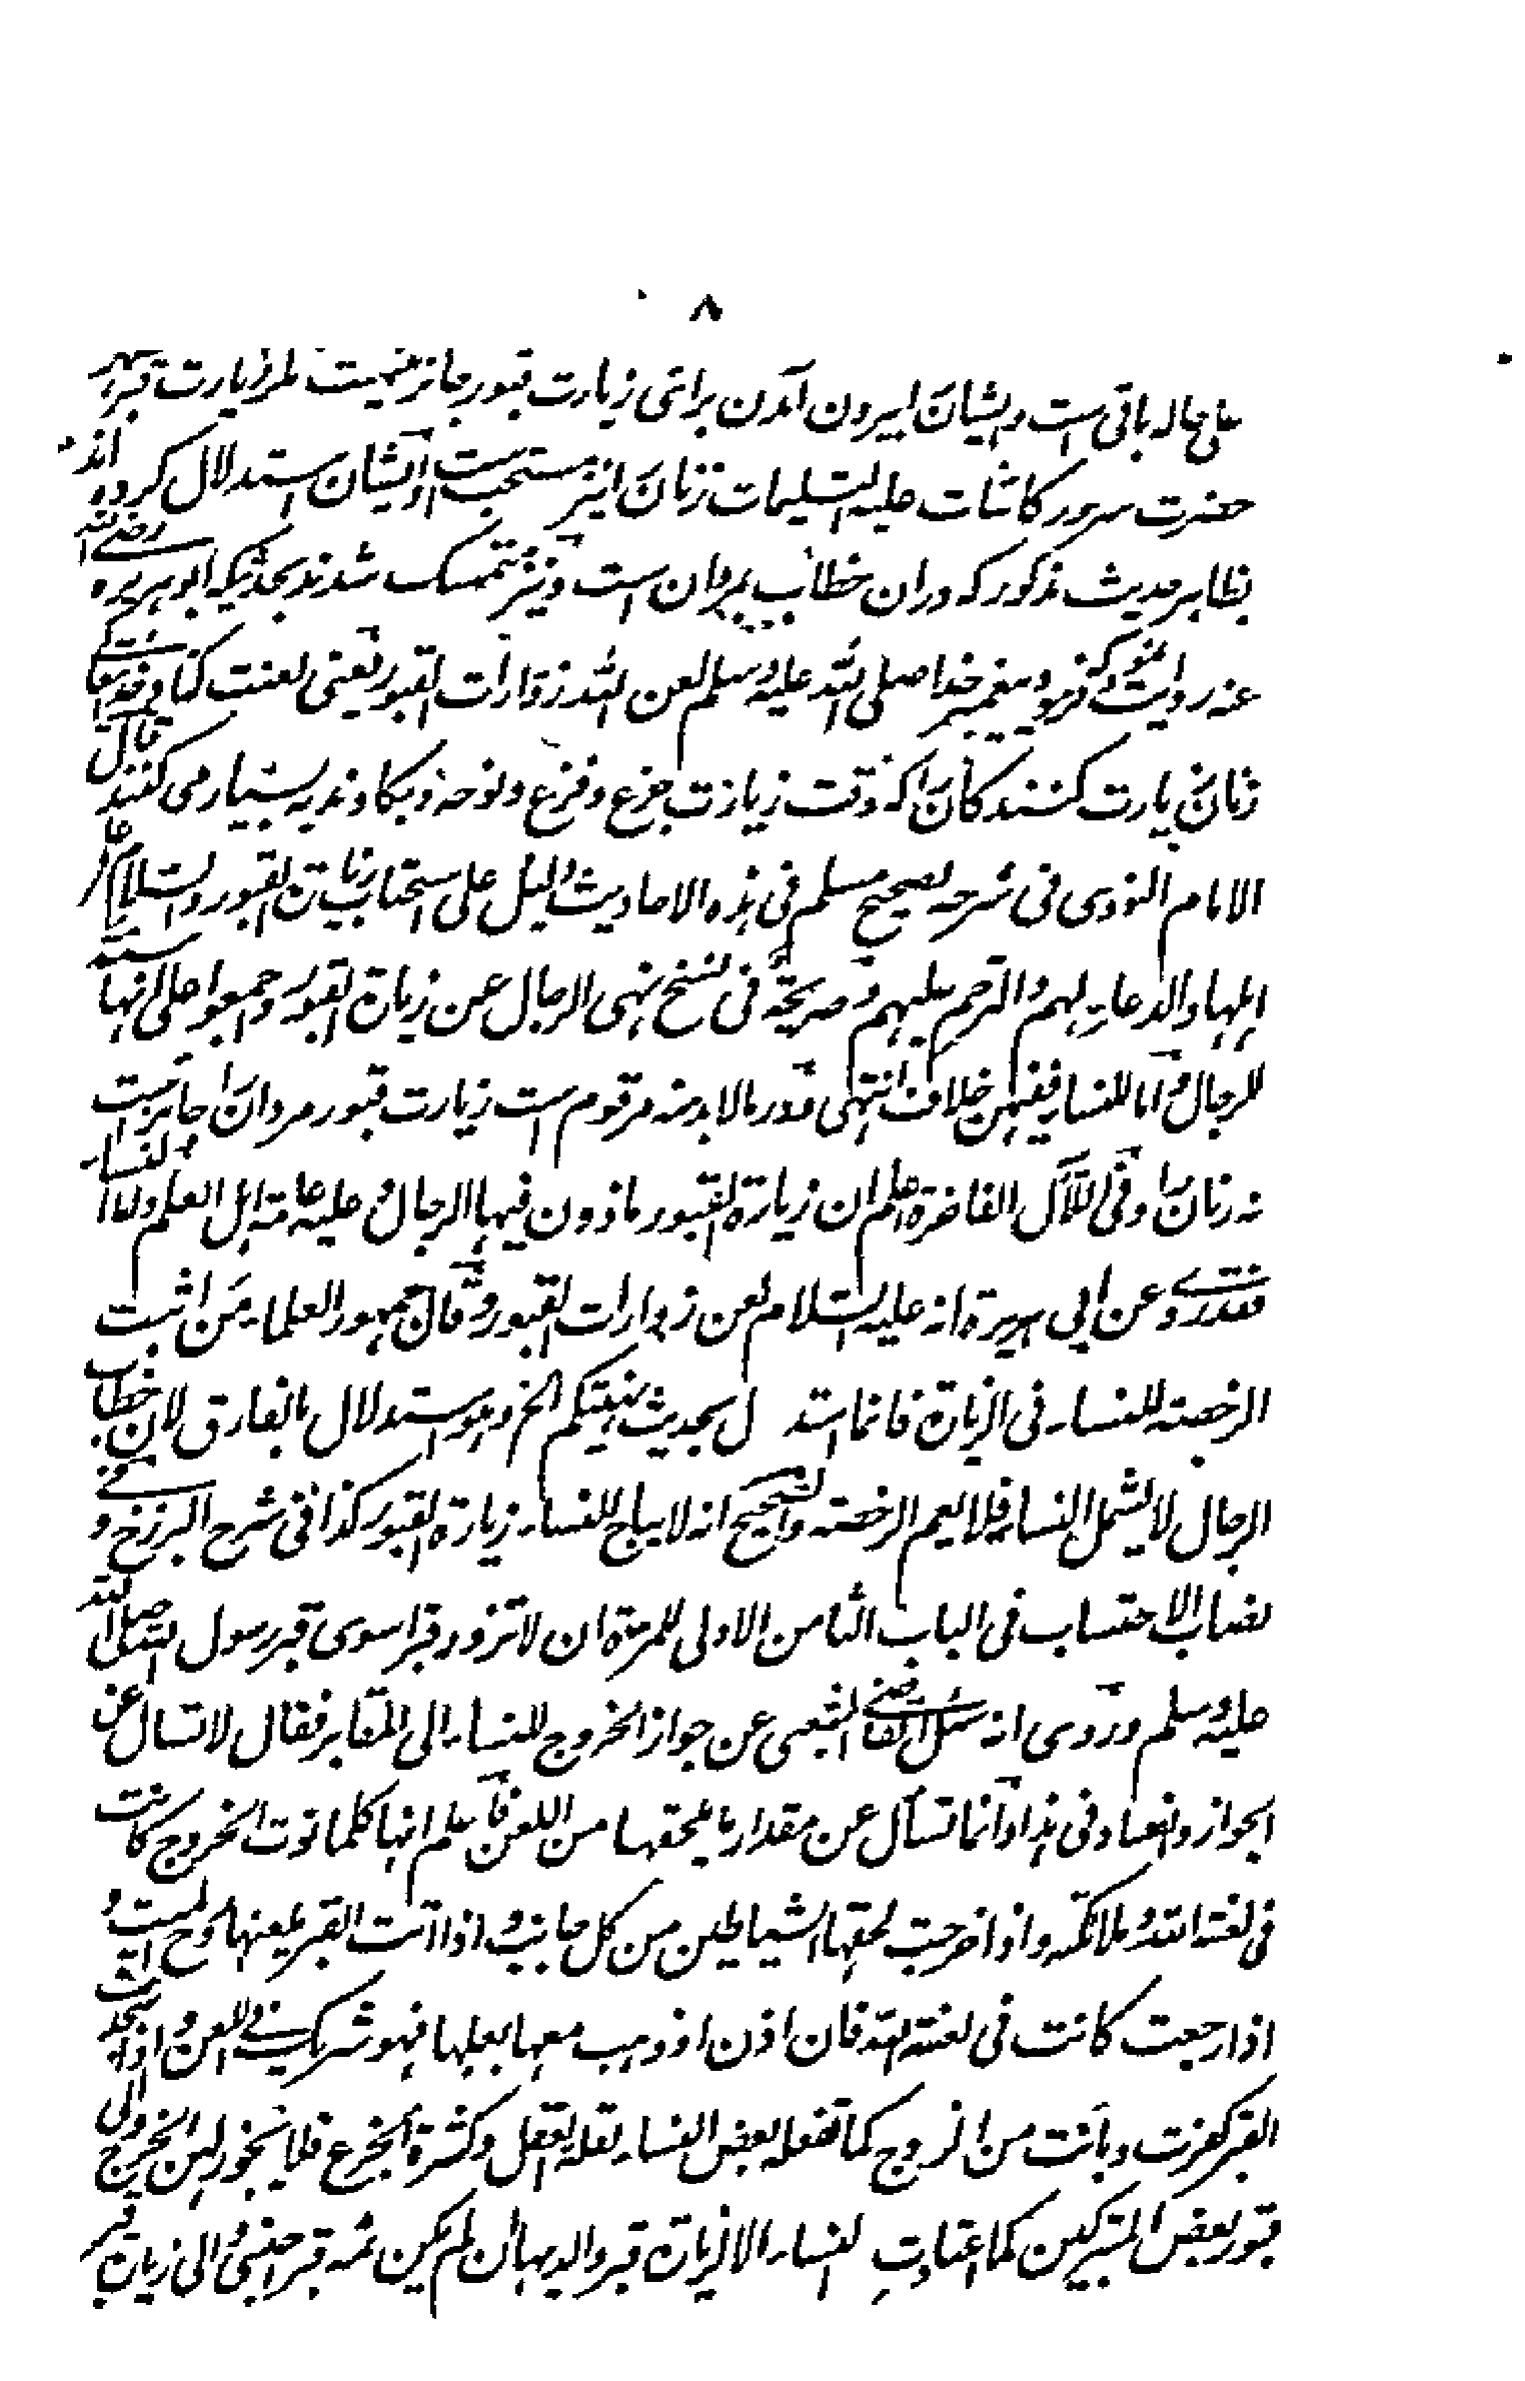 ۸
علی حاله باقی است و ایشانرا بیرون آمدن برای زیارت قبور جائز نیست مگر زیارت قبر
حضرت سرور کائنات علیه التسلیمات زنانرا نیز مستحب است و ایشان استدلال کرده اند
بظاهر حدیث مذکور که دران خطاب بمردان است و نیز متمسک شدند بحدیثیکه ابو هریره رضی الله
عنه روایت کرد فرمود پیغمبر خدا صلی الله علیه وسلم لعن الله زوّارات القبور یعنی لعنت کناد خدایتعالی
زنان زیارت کنندگان را که وقت زیارت جزع و فزع و نوحه و بکا و ندبه بسیار می کنند قال
الامام النووی فی شرحه لصحیح مسلم فی هذه الاحادیث دلیل علی استحباب زیارت القبور والسلام علی
اهلها والدعاء لهم والترحم علیهم و صریحة فی نسخ نهی الرجال عن زیارة القبور و اجمعوا علی انها سنة
للرجال و اما للنساء ففیهن خلاف انتهی و در مالابد منه مرقوم است زیارت قبور مردانرا جائز است
نه زنان را و فی اللآلی الفاخرة اعلم ان زیارة القبور ماذون فیها الرجال و علیه عامة اهل العلم و اما النساء
فقد روی عن ابی هریرة انه علیه السلام لعن زوارات القبور و قال جمهور العلماء من اثبت
الرخصة للنساء فی الزیارة فانما استدل بحدیث نهیتکم الخ و هو استدلال بالفارق لان خطاب
الرجال لا یشمل النساء فلا یعم الرخصة والصحیح انه لا یباح للنساء زیارة القبور کذا فی شرح البرزخ و فی
نصاب الاحتساب فی الباب الثامن الاولی للمرءة ان لا تزور قبرا سوی قبر رسول الله صلی الله
علیه وسلم و روی انه سئل القاضی الشعبی عن جواز الخروج للنساء الی المقابر فقال لا تسأل عن
الجواز والفساد فی هذا و انما تسأل عن مقدار ما یلحقها من اللعن فاعلم انها کلما نوت الخروج کانت
فی لعنة الله و ملائکته و اذا خرجت لحقها الشیاطین من کل جانب و اذا اتت القبر یلعنها روح المیت و
اذا رجعت کانت فی لعنة الله فان اذن او ذهب معها بعلها فهو شریک فی اللعن و اذا سجدت
القبر کفرت و بانت من الزوج کما تفعله بعض النساء لقلة العقل و کثرة الجزع فلا یجوز لهن الخروج الی
قبور بعض المتبرکین کما اعتادت النساء الا لزیارة قبر والدیها ان لم یکن ثمه قبر اجنبی و الی زیارة قبر